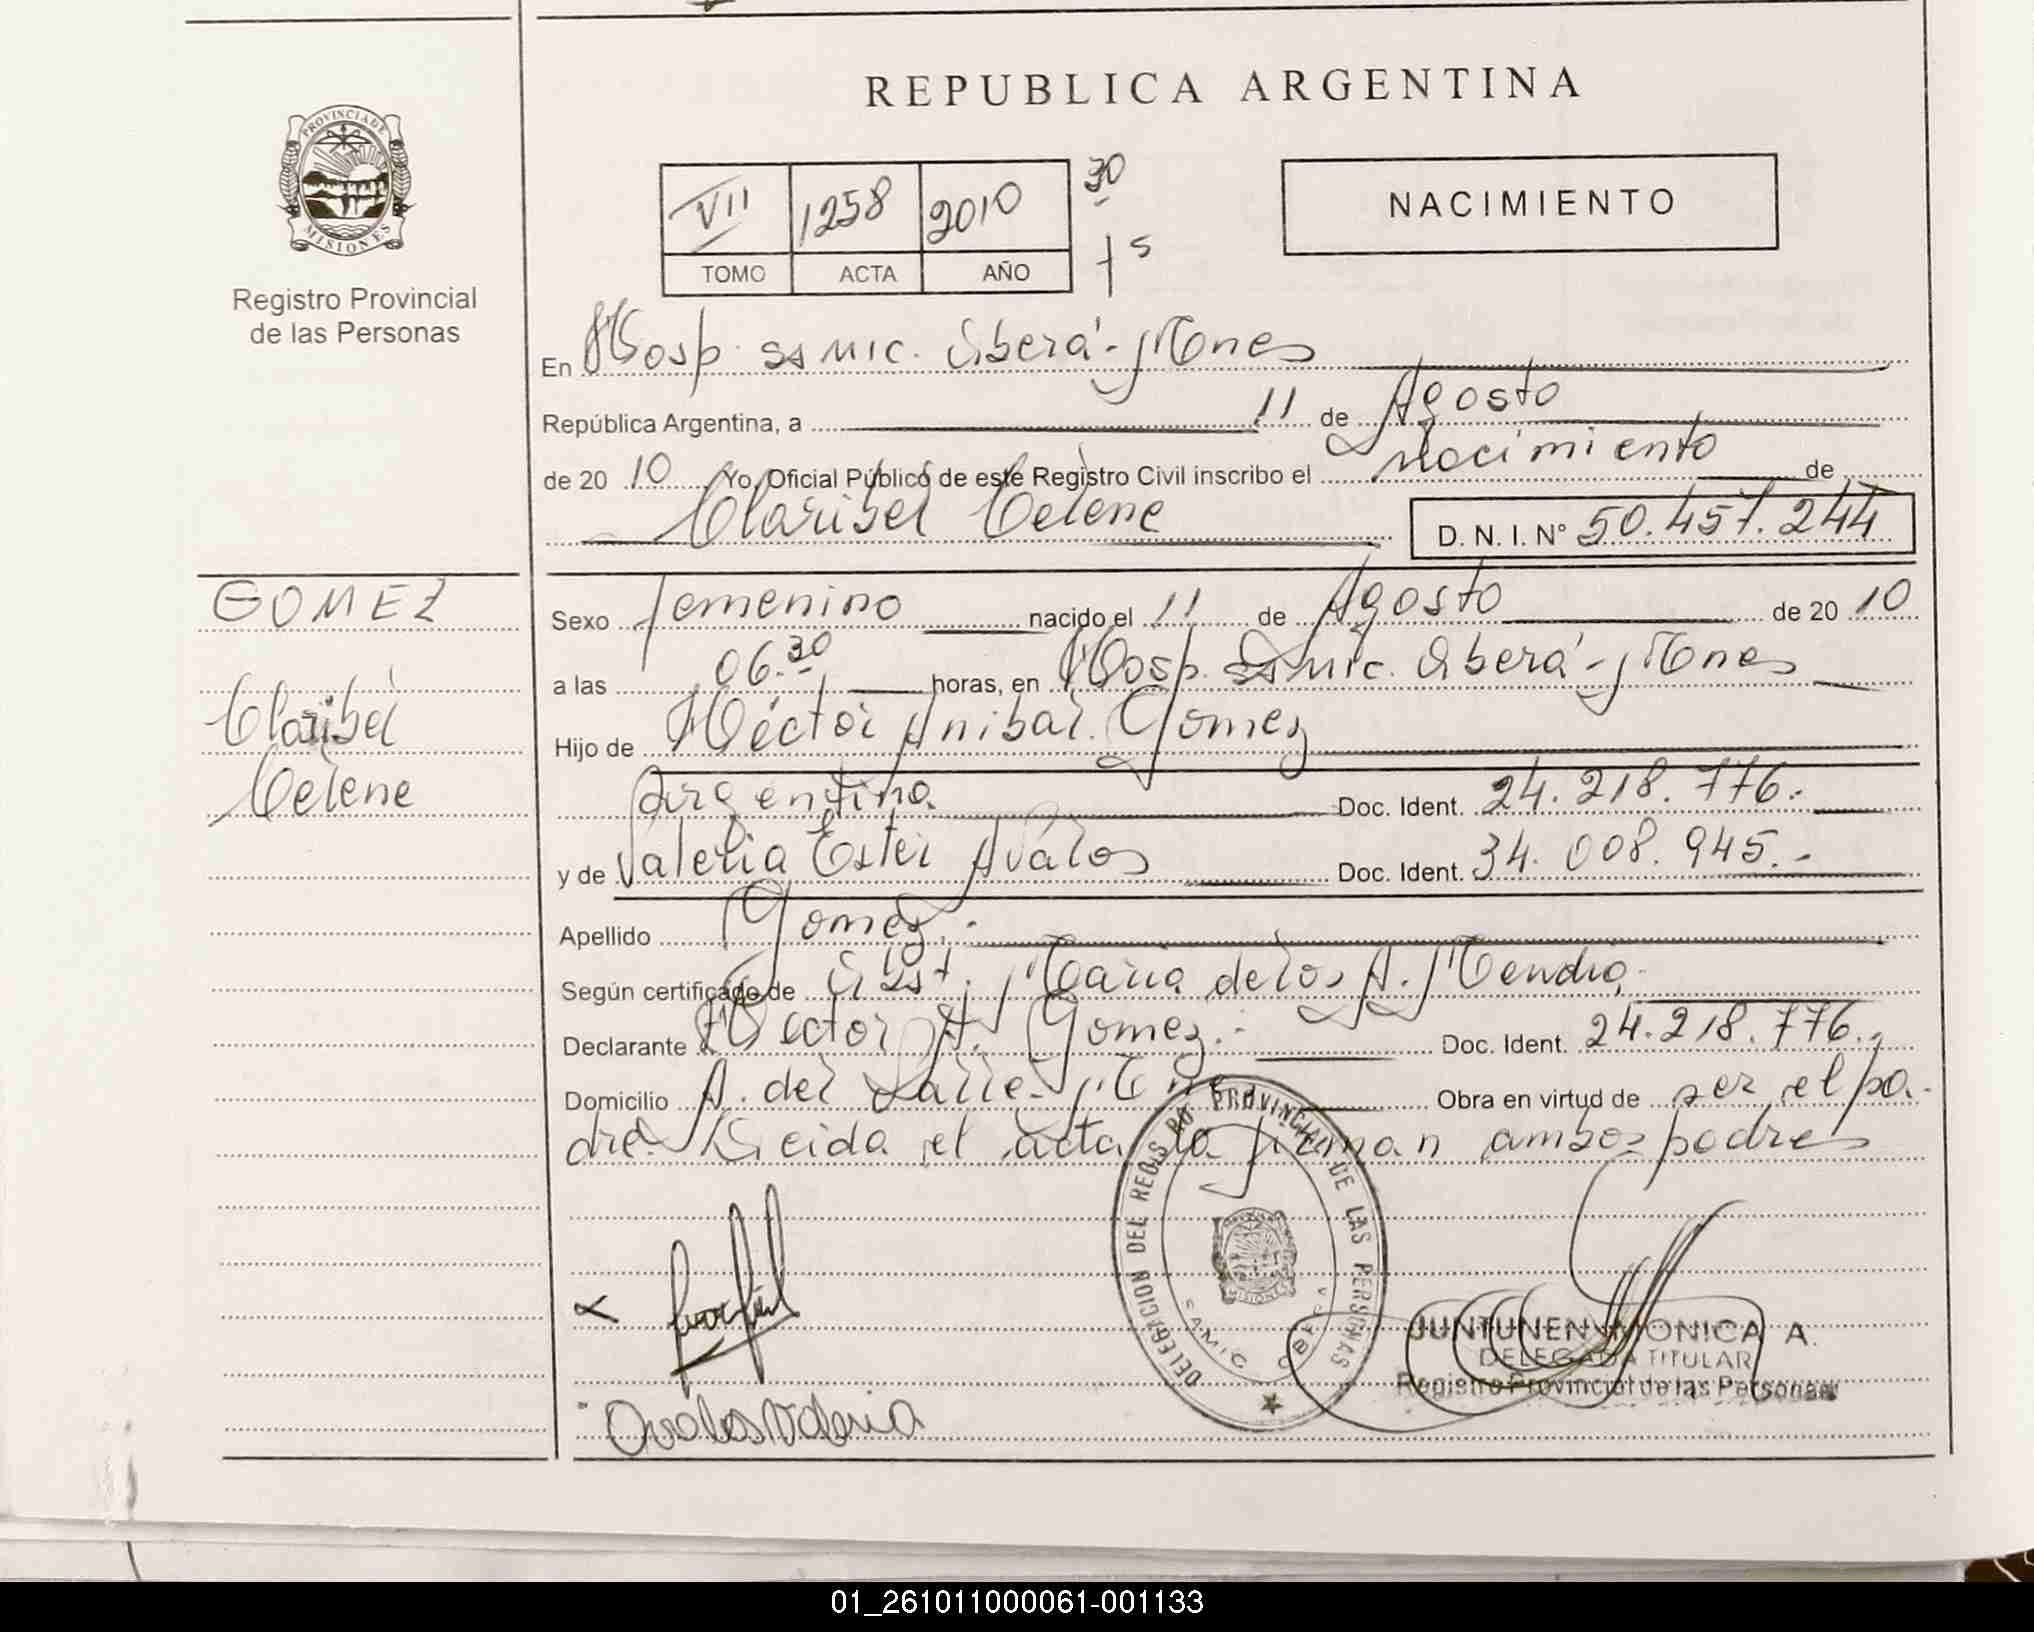 REPUBLICA ARGENTINA
PROVINCIA DE
MISIONES
Registro Provincial
de las Personas
VII 1258 2010 30
TOMO ACTA AÑO
NACIMIENTO
En Hosp. SAMIC. Oberá - Mnes
República Argentina, a 11 de Agosto
de 20 10 Yo, Oficial Público de este Registro Civil inscribo el nacimiento de
Claribel Celene D. N. I. Nº 50.457.244
GOMEZ
Claribel
Celene
Sexo femenino nacido el 11 de Agosto de 20 10
a las 06.30 horas, en Hosp. SAMIC. Oberá - Mnes
Hijo de Héctor Anibal Gomez
argentina Doc. Ident. 24.218.776.
y de Valeria Ester Avalos Doc. Ident. 34.008.945.-
Apellido Gomez.-
Según certificado de Obst. Maria de los A.
Declarante Héctor A. Gomez.- Doc. Ident. 24.218.776.
Domicilio A. del Valle - Mnes Obra en virtud de ser el pa-
dre. Leida el acta la firman ambos padres
DELEGACION DEL REGISTRO PROVINCIAL DE LAS PERSONAS
SAMIC OBERA
MISIONES
JUNTUNEN MONICA A.
DELEGADA TITULAR
Registro Provincial de las Personas
Avalos Valeria
01_261011000061-001133